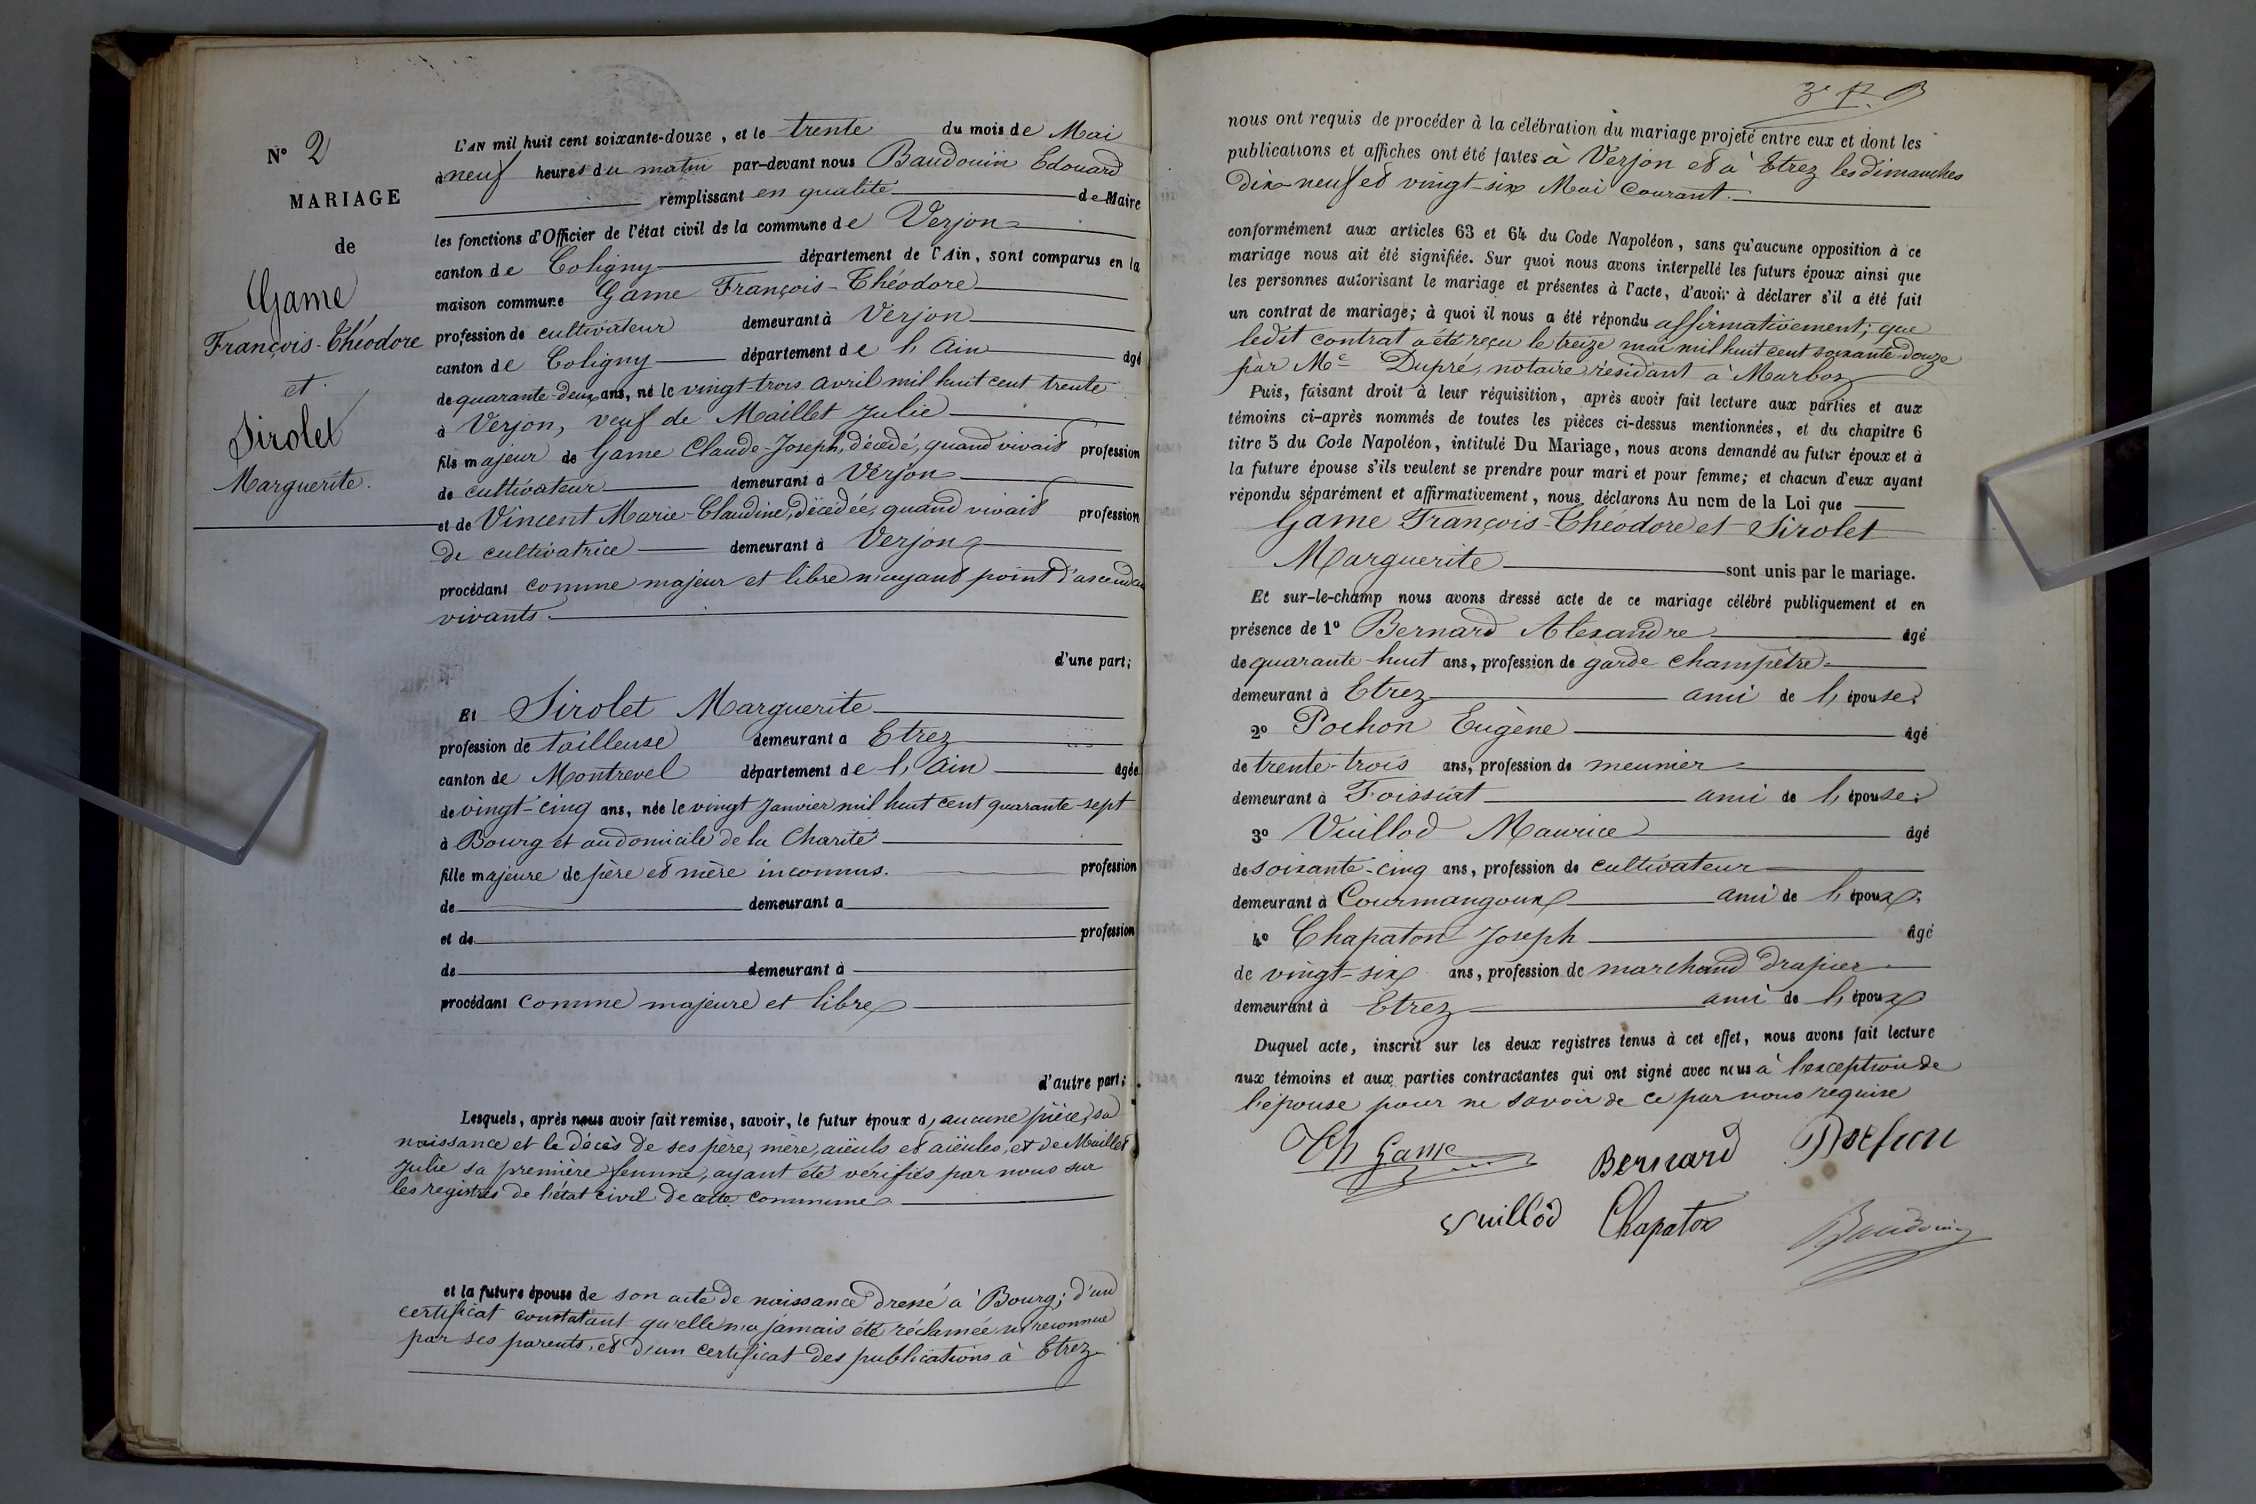 N° 2
MARIAGE
de
Game
François-Théodore
et
Sirolet
Marguerite.
L'AN mil huit cent soixante-douze, et le trente du mois de Mai
à neuf heures du matin par-devant nous Baudouin Edouard
remplissant en qualité de Maire
les fonctions d'Officier de l'état civil de la commune de Verjon
canton de Coligny département de l'Ain, sont comparus en la
maison commune Game François-Théodore
profession de cultivateur demeurant à Verjon
canton de Coligny département de l'Ain âgé
de quarante-deux ans, né le vingt-trois avril mil huit cent trente
à Verjon, veuf de Maillet Julie
fils majeur de Game Claude-Joseph, décédé, quand vivait profession
de cultivateur demeurant à Verjon
et de Vincent Marie-Claudine, décédée, quand vivait profession
de cultivatrice demeurant à Verjon
procédant comme majeur et libre n'ayant point d'ascendants
vivants.
d'une part;
Et Sirolet Marguerite
profession de tailleuse demeurant à Etrez
canton de Montrevel département de l'Ain âgée
de vingt-cinq ans, née le vingt Janvier mil huit cent quarante-sept
à Bourg et au domicile de la Charité
fille majeure de père et mère inconnus. profession
de demeurant à
et de profession
de demeurant à
procédant comme majeure et libre
d'autre part;
Lesquels, après nous avoir fait remise, savoir, le futur époux d'aucune pièce, sa
naissance et le décès de ses père, mère, aïeuls et aïeules, et de Maillet
Julie sa première femme, ayant été vérifiés par nous sur
les registres de l'état civil de cette commune
et la future épouse de son acte de naissance dressé à Bourg; d'un
certificat constatant qu'elle n'a jamais été réclamée ni reconnue
par ses parents, et d'un certificat des publications à Etrez
nous ont requis de procéder à la célébration du mariage projeté entre eux et dont les
publications et affiches ont été faites à Verjon et à Etrez les dimanches
dix-neuf et vingt-six Mai courant.
conformément aux articles 63 et 64 du Code Napoléon, sans qu'aucune opposition à ce
mariage nous ait été signifiée. Sur quoi nous avons interpellé les futurs époux ainsi que
les personnes autorisant le mariage et présentes à l'acte, d'avoir à déclarer s'il a été fait
un contrat de mariage; à quoi il nous a été répondu affirmativement; que
ledit contrat a été reçu le treize mai mil huit cent soixante-douze
par Me Dupré, notaire résidant à Marboz
Puis, faisant droit à leur réquisition, après avoir fait lecture aux parties et aux
témoins ci-après nommés de toutes les pièces ci-dessus mentionnées, et du chapitre 6
titre 5 du Code Napoléon, intitulé Du Mariage, nous avons demandé au futur époux et à
la future épouse s'ils veulent se prendre pour mari et pour femme; et chacun d'eux ayant
répondu séparément et affirmativement, nous déclarons Au nom de la Loi que
Game François-Théodore et Sirolet
Marguerite sont unis par le mariage.
Et sur-le-champ nous avons dressé acte de ce mariage célébré publiquement et en
présence de 1° Bernard Alexandre âgé
de quarante-huit ans, profession de garde champêtre
demeurant à Etrez ami de l'épouse;
2° Pochon Eugène âgé
de trente-trois ans, profession de meunier
demeurant à Foissiat ami de l'épouse;
3° Vuillod Maurice âgé
de soixante-cinq ans, profession de cultivateur
demeurant à Courmangoux ami de l'époux;
4° Chapaton Joseph âgé
de vingt-six ans, profession de marchand drapier
demeurant à Etrez ami de l'époux
Duquel acte, inscrit sur les deux registres tenus à cet effet, nous avons fait lecture
aux témoins et aux parties contractantes qui ont signé avec nous à l'exception de
l'épouse pour ne savoir de ce par nous requise
Th Game Bernard Pochon
Vuillod Chapaton Baudouin